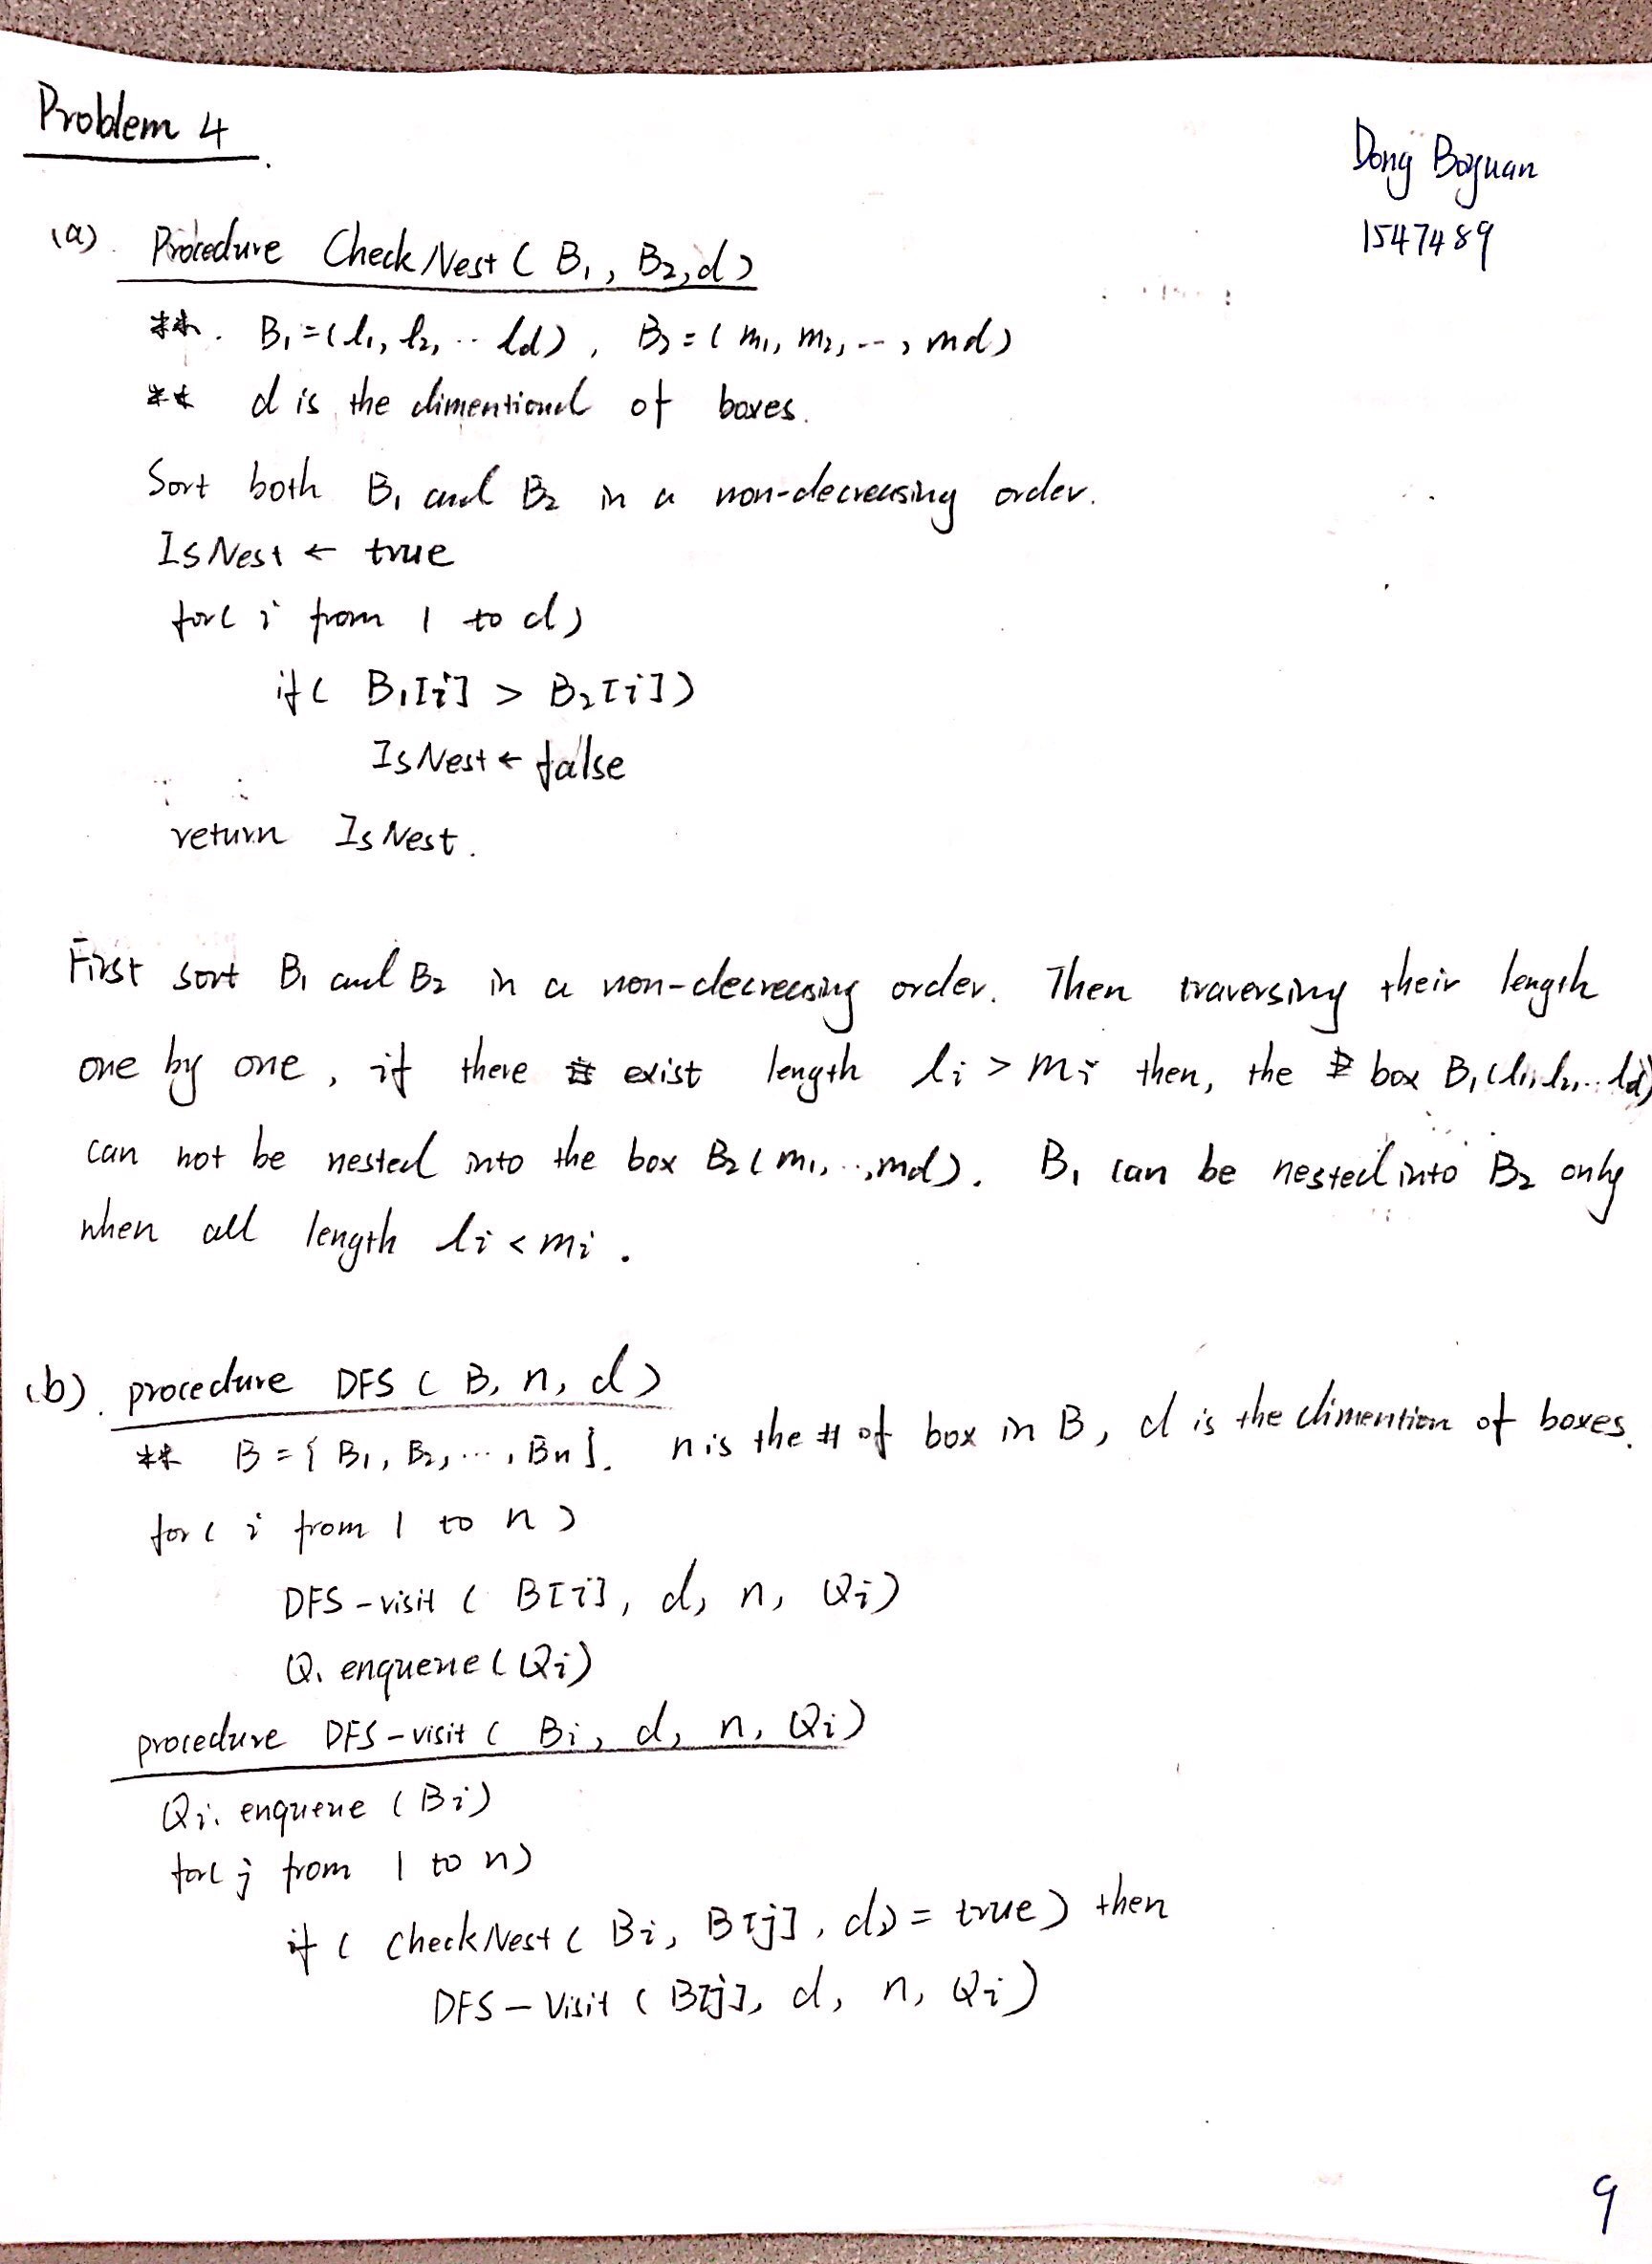 Problem 4
Dong Boyuan
1547489
(a). Procedure CheckNest ( B1, B2, d )
**. B1 = ( l1, l2, .. ld ), B2 = ( m1, m2, --, md )
** d is the dimentional of boxes.
Sort both B1 and B2 in a non-decreasing order.
IsNest ← true
for( i from 1 to d )
if ( B1[i] > B2[i] )
IsNest ← false
return IsNest.
First sort B1 and B2 in a non-decreasing order. Then traversing their length
one by one, if there exist length li > mi then, the box B1 (l1, l2, .. ld)
can not be nested into the box B2 ( m1, .., md ). B1 can be nested into B2 only
when all length li < mi .
(b). procedure DFS ( B, n, d )
** B = { B1, B2, ..., Bn }. n is the # of box in B, d is the dimention of boxes.
for ( i from 1 to n )
DFS-visit ( B[i], d, n, Qi )
Q. enqueue ( Qi )
procedure DFS-visit ( Bi, d, n, Qi )
Qi. enqueue ( Bi )
for( j from 1 to n )
if ( CheckNest ( Bi, B[j], d ) = true ) then
DFS-Visit ( B[j], d, n, Qi )
9